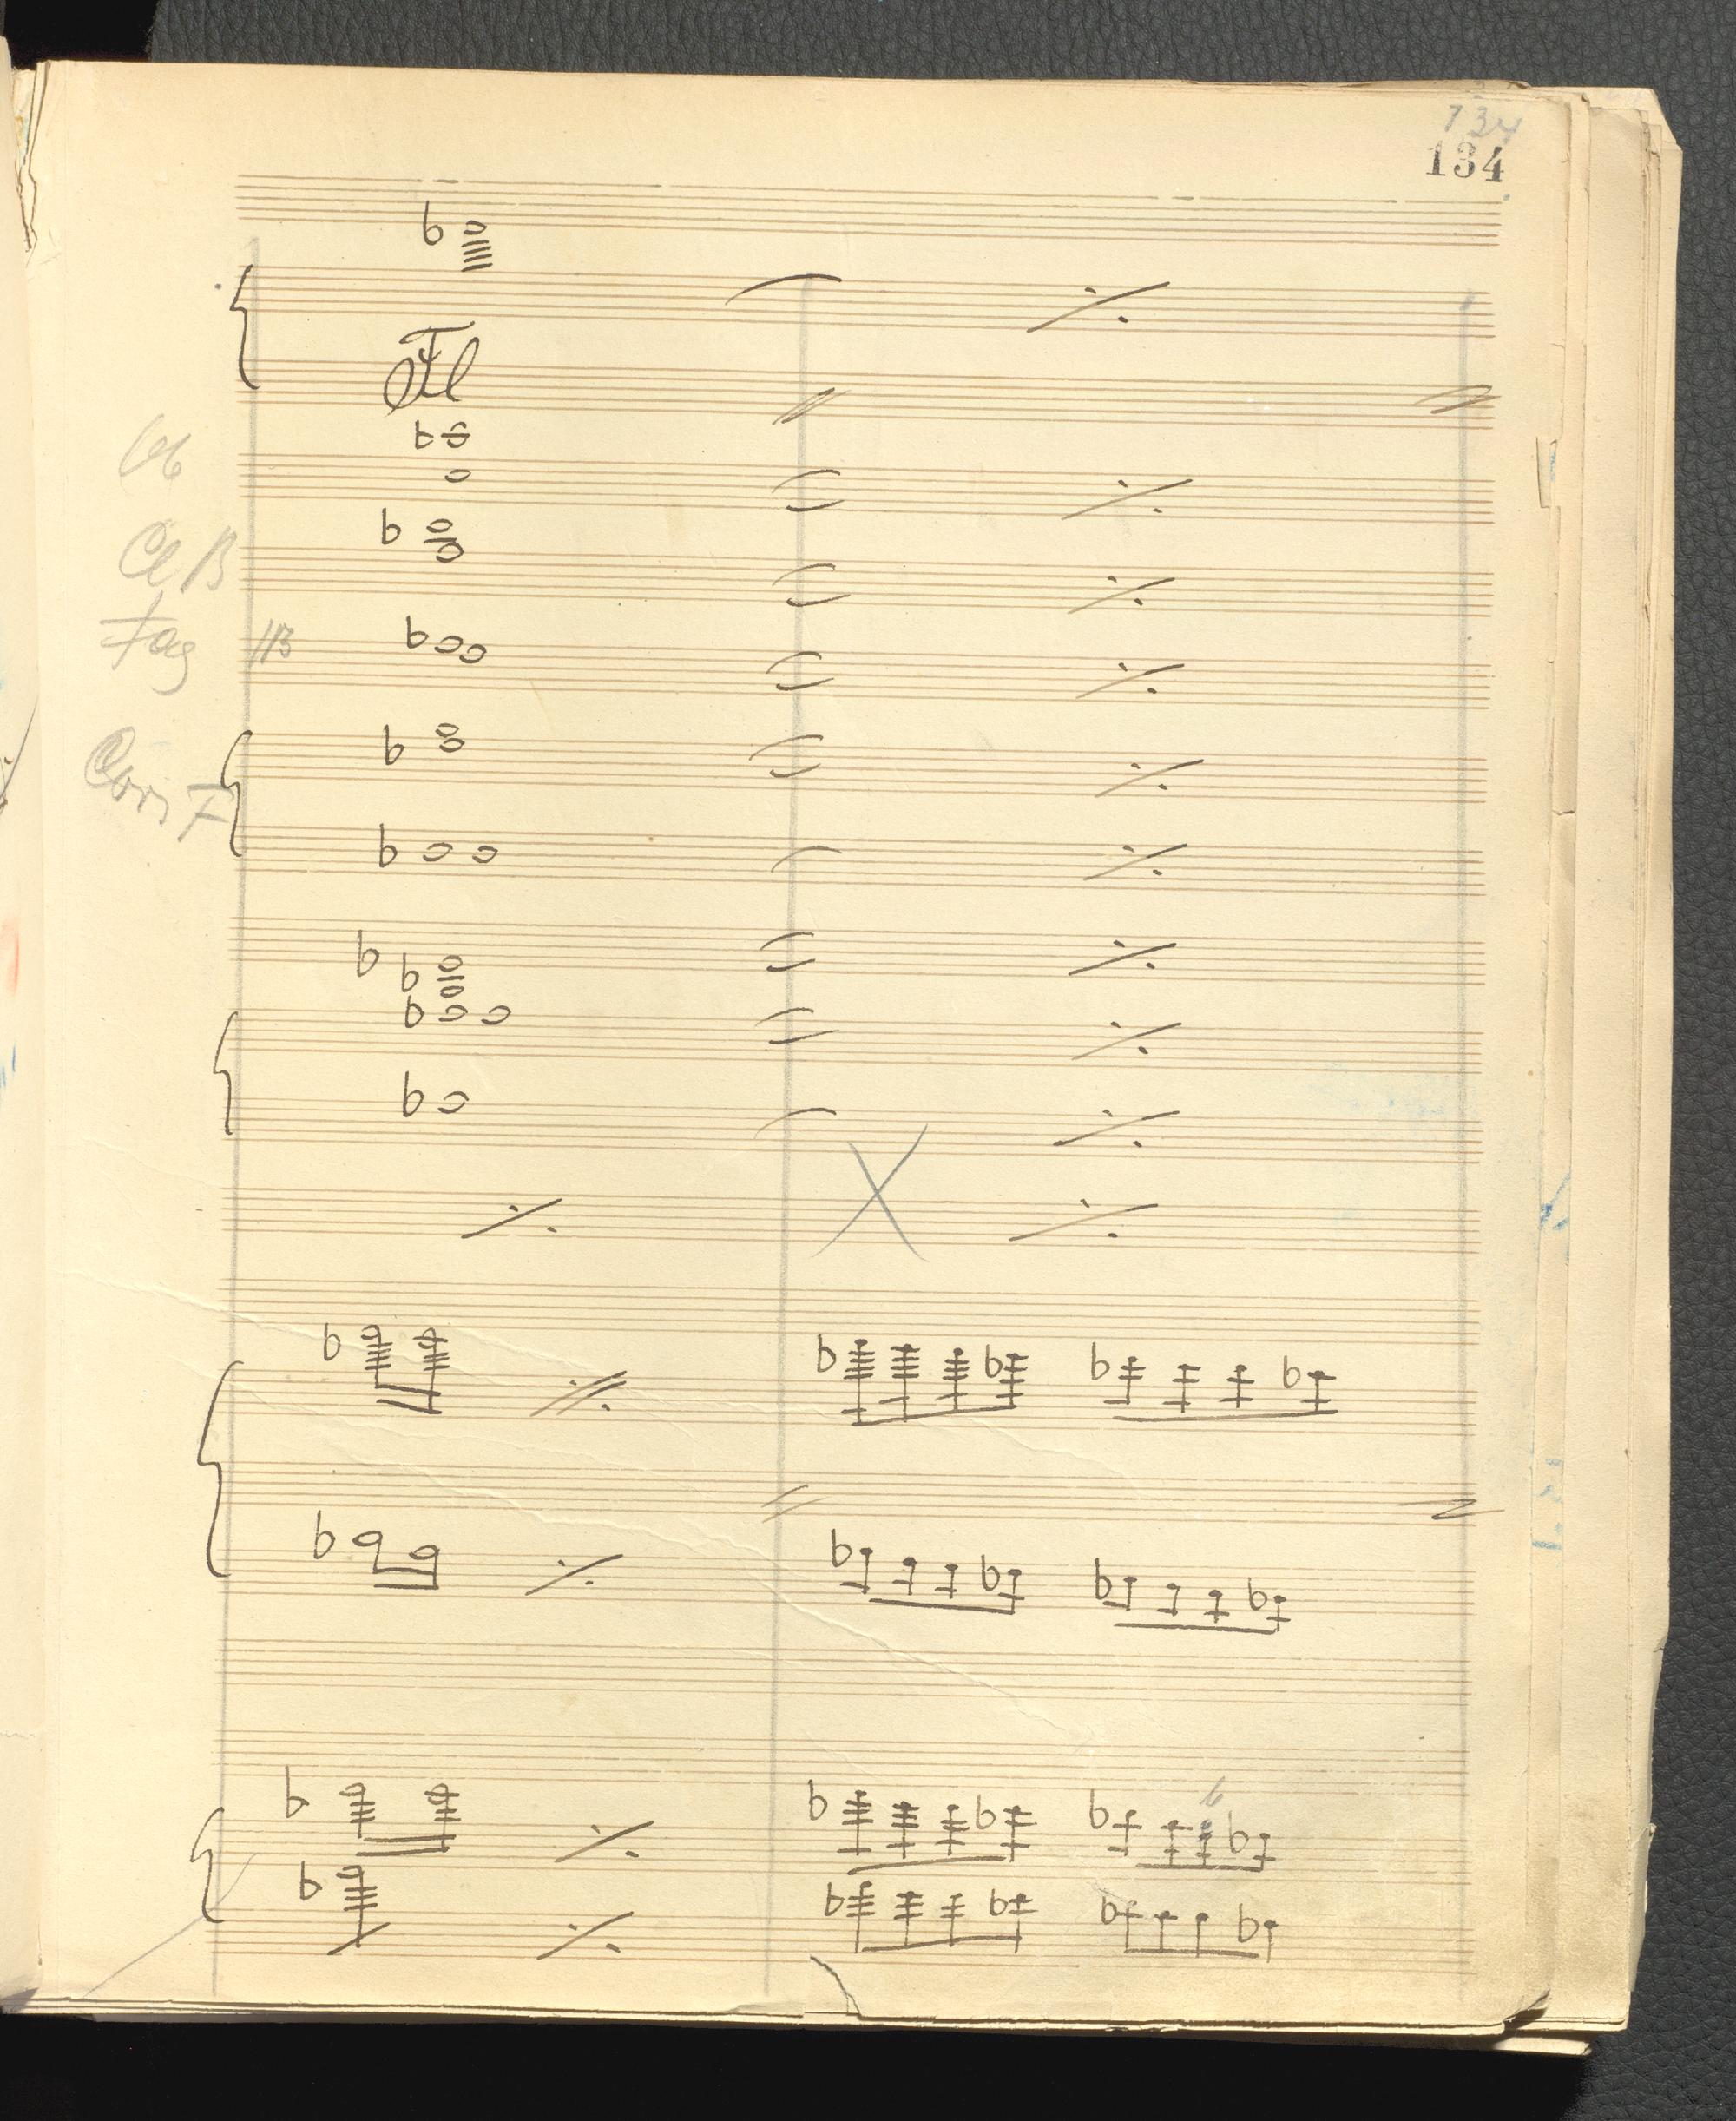 134
134
Fl
Ob
Cl B
Fag
Corn F